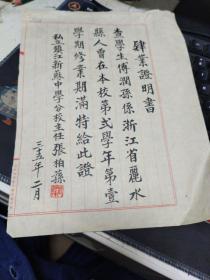 肄業證明書
查學生傅潤孫係浙江省麗水
縣人曾在本校第弍學年第壹
學期修業期滿特給此證
私立鎮江新蘇中學分校主任張柏蓀
三五年二月